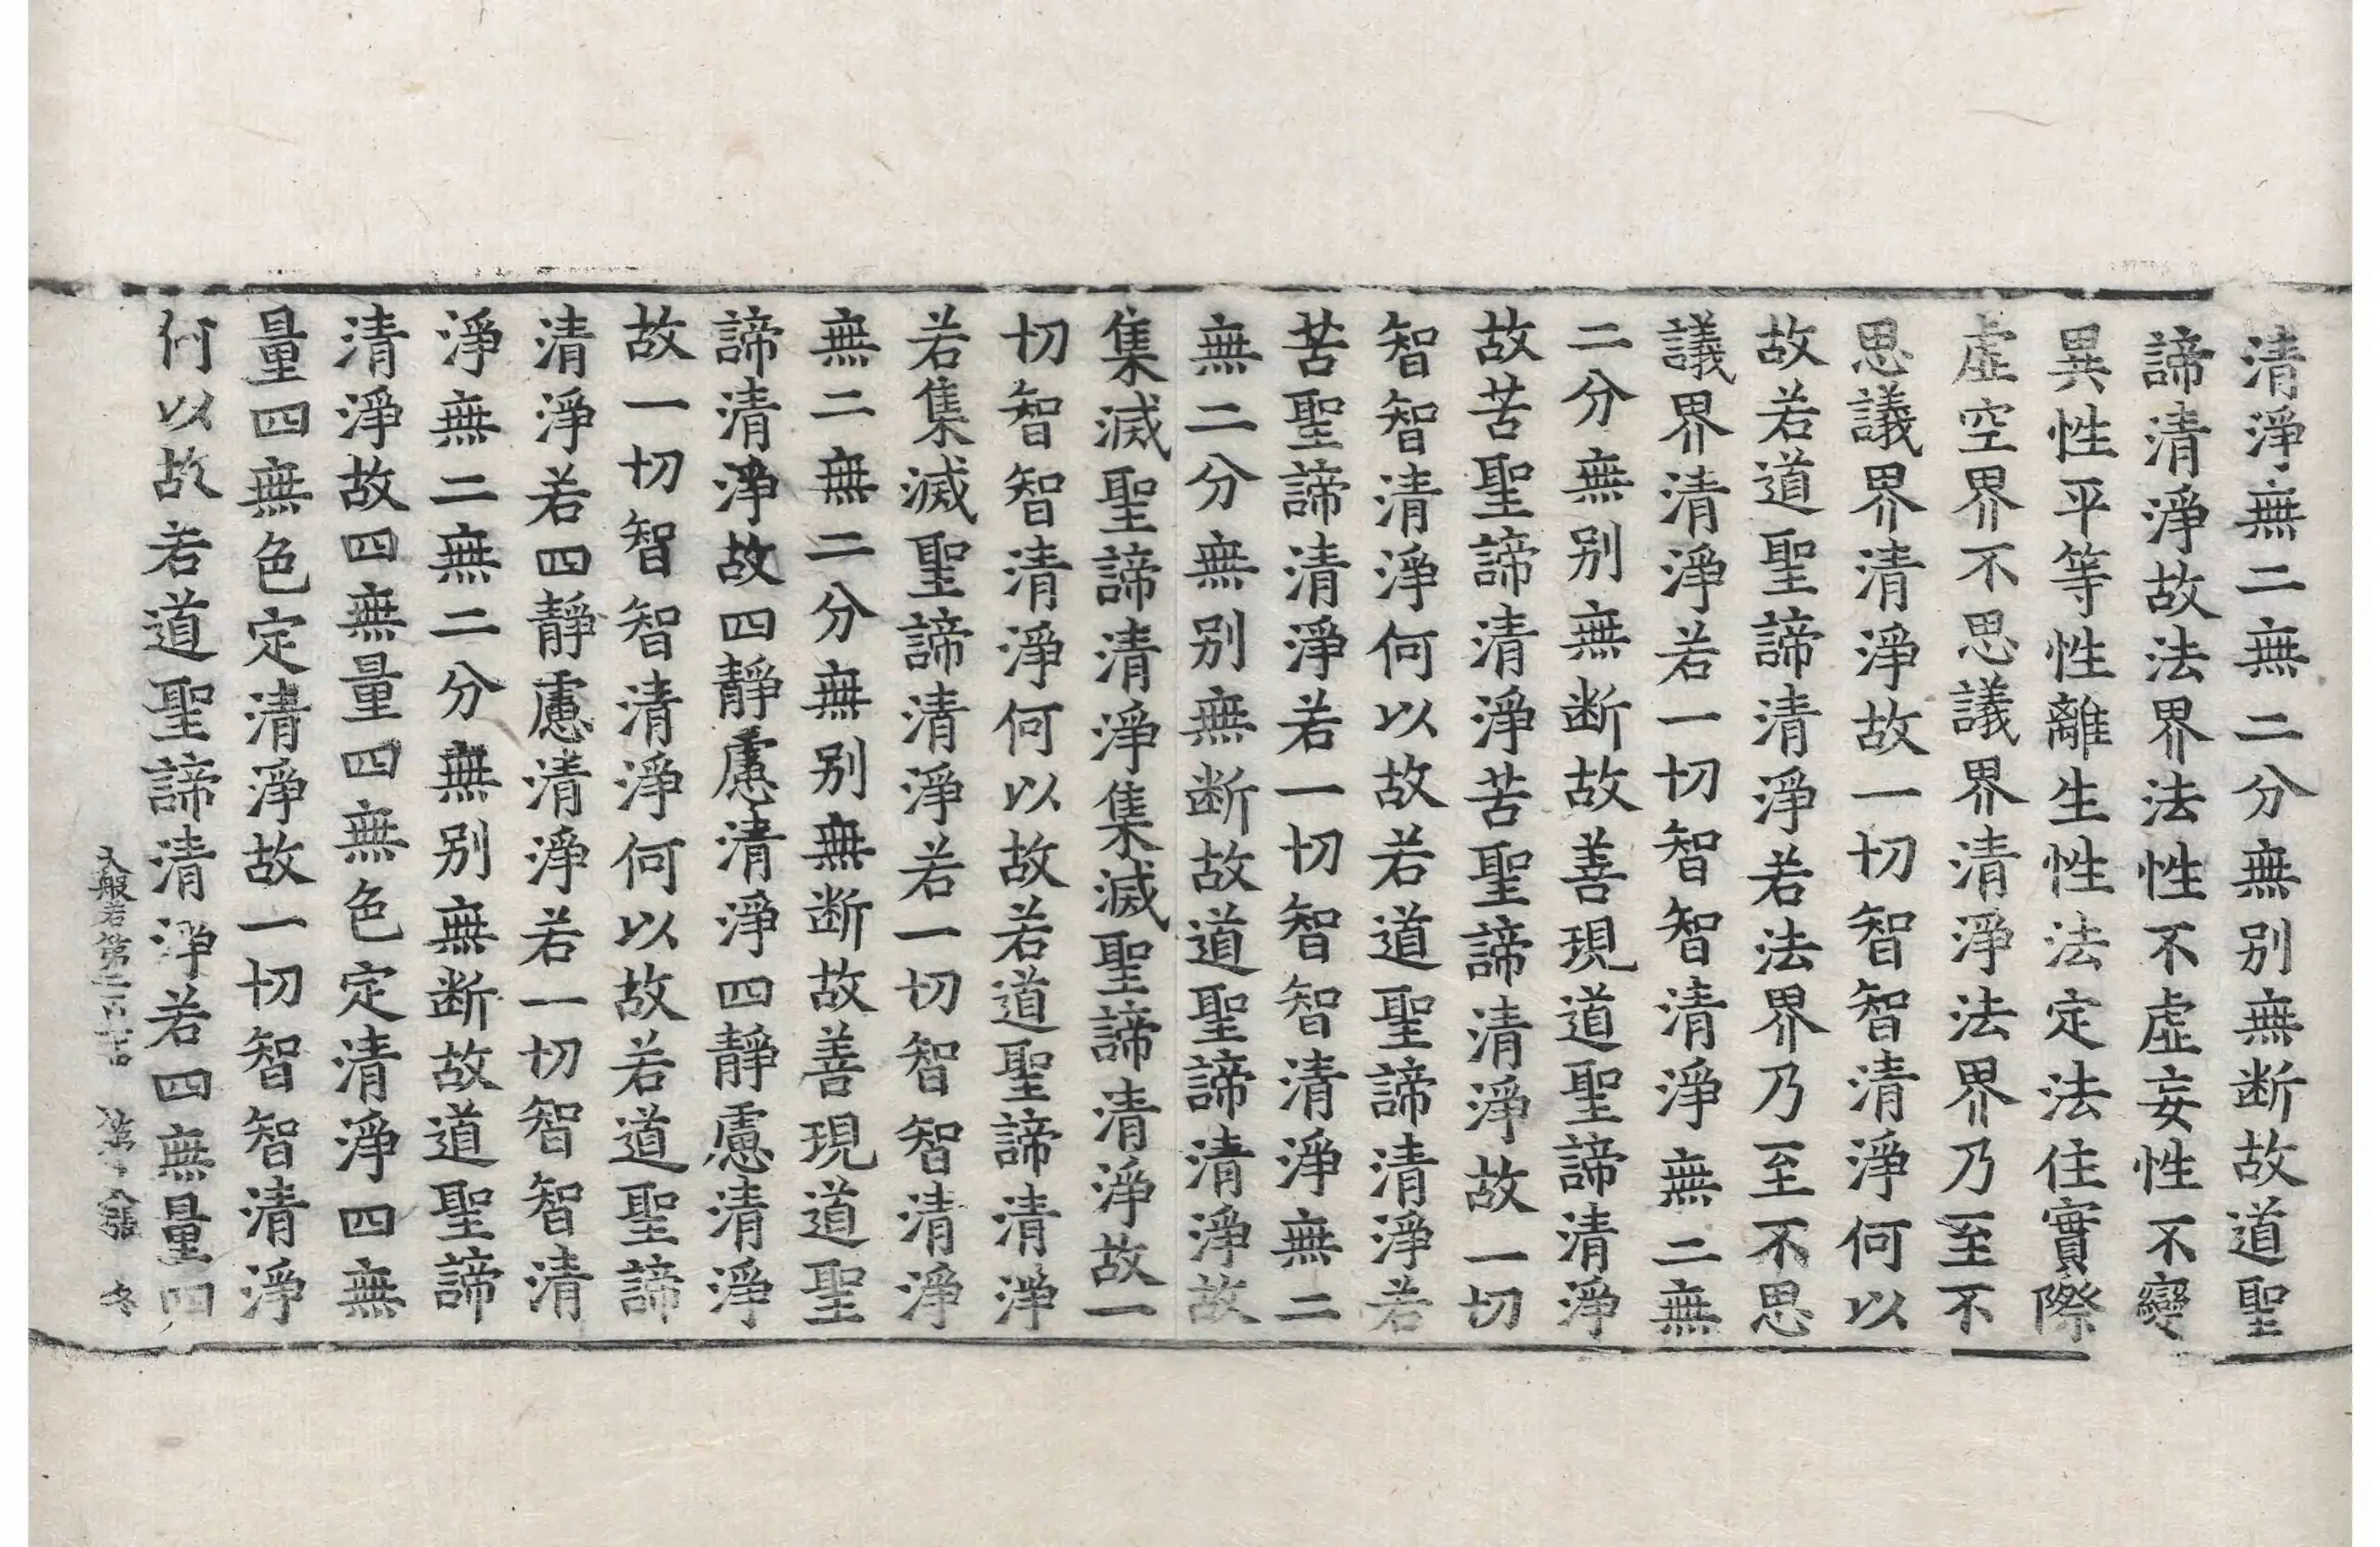 清淨無二無二分無别無断故道聖
諦清淨故法界法性不虛妄性不變
異性平等性離生性法定法住實際
虛空界不思議界清淨法界乃至不
思議界清淨故一切智智清淨何以
故若道聖諦清淨若法界乃至不思
議界清淨若一切智智清淨無二無
二分無别無断故善現道聖諦清淨
故苦聖諦清淨苦聖諦清淨故一切
智智清淨何以故若道聖諦清淨若
苦聖諦清淨若一切智智清淨無二
無二分無别無断故道聖諦清淨故
集滅聖諦清淨集滅聖諦清淨故一
切智智清淨何以故若道聖諦清淨
若集滅聖諦清淨若一切智智清淨
無二無二分無别無断故善現道聖
諦清淨故四靜慮清淨四靜慮清淨
故一切智智清淨何以故若道聖諦
清淨若四靜慮清淨若一切智智清
淨無二無二分無别無断故道聖諦
清淨故四無量四無色定清淨四無
量四無色定清淨故一切智智清淨
何以故若道聖諦清淨若四無量四
大般若第二百 第 冬